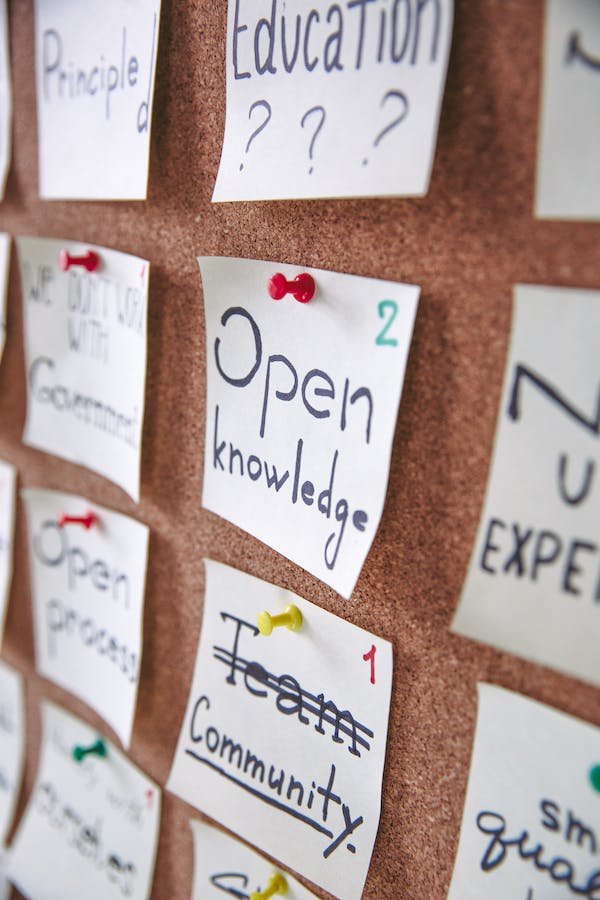 Principle
Education
? ? ?
We DON'T WORK
WITH
Government
2
Open
knowledge
Open
process
1
Team
Community
U
EXPE
sm
qual